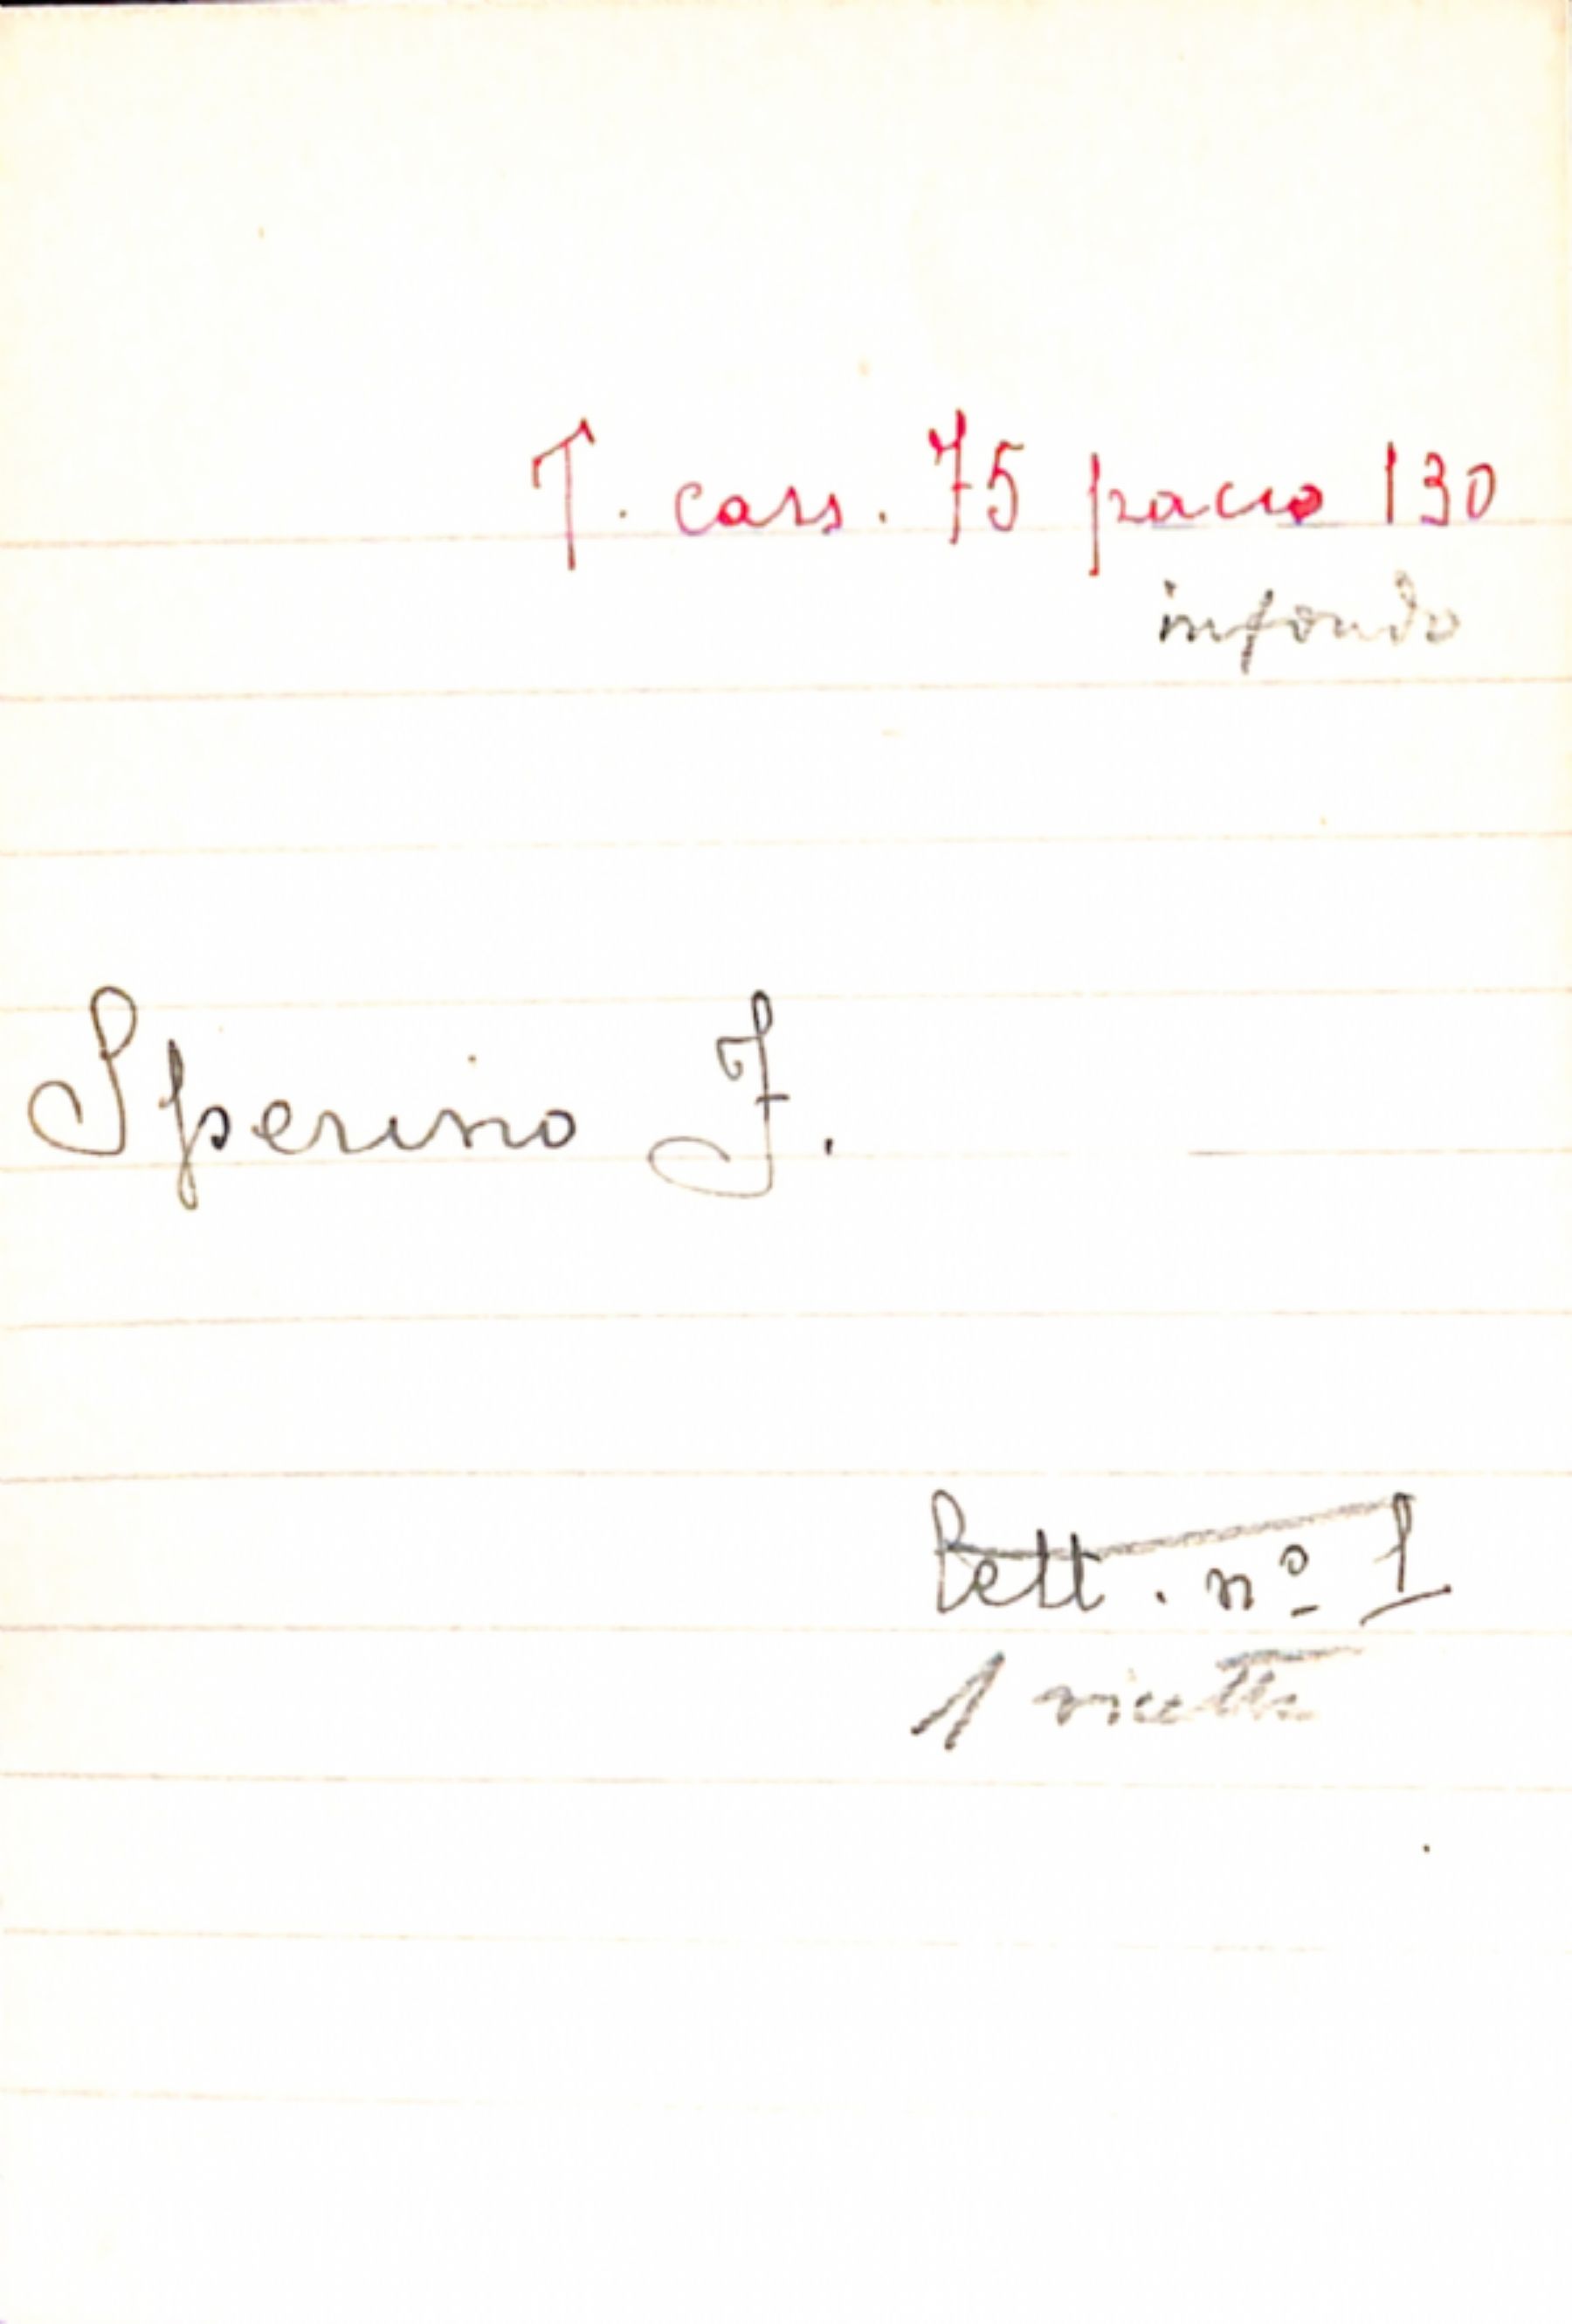 T. cass. 75 pacco 130
in fondo
Sperino F.
Lett. nº 1
1 ricetta